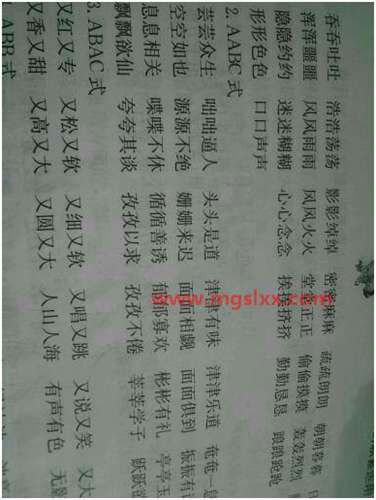 吞吞吐吐 浩浩荡荡 影影绰绰 密密麻麻 疏疏朗朗 朝朝暮暮
浑浑噩噩 风风雨雨 风风火火 堂堂正正 偷偷摸摸 轰轰烈烈
隐隐约约 迷迷糊糊 心心念念 挨挨挤挤 勤勤恳恳 踉踉跄跄
形形色色 口口声声
2. AABC 式
芸芸众生 咄咄逼人 头头是道 津津有味 津津乐道 奄奄一
空空如也 源源不绝 姗姗来迟 面面相觑 面面俱到 振振有
息息相关 喋喋不休 循循善诱 郁郁寡欢 彬彬有礼 亭亭玉
飘飘欲仙 夸夸其谈 孜孜以求 孜孜不倦 莘莘学子 跃跃欲
3. ABAC 式
又红又专 又松又软 又细又软 又唱又跳 又说又笑 又大
又香又甜 又高又大 又圆又大 人山人海 有声有色 无影
ABB 式
www.mgslxx.com